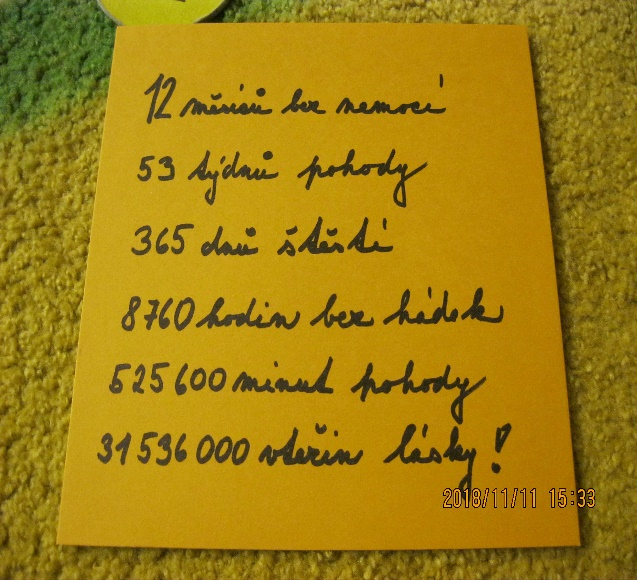 12 měsíců bez nemocí
53 týdnů pohody
365 dnů štěstí
8760 hodin bez hádek
525600 minut pohody
31536000 vteřin lásky!
2018/11/11 15:33